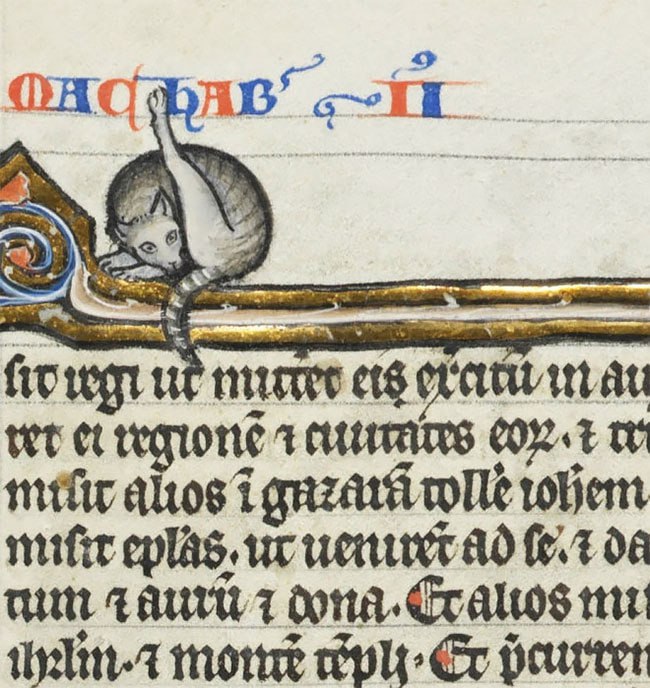 MACHAB' II
sit regi ut mittet̄ eis ex̄citū in au
ret ei regionē ⁊ ciuitates eoꝝ. ⁊ tri
misit alios ī gazarā tolle᷑ ioh̄em
misit ep̄las. ut uenirēt ad se. ⁊ da
tum ⁊ aurū ⁊ dona. Et alios mi
ihrl̄m. ⁊ montē tēpli. Et p̄curren